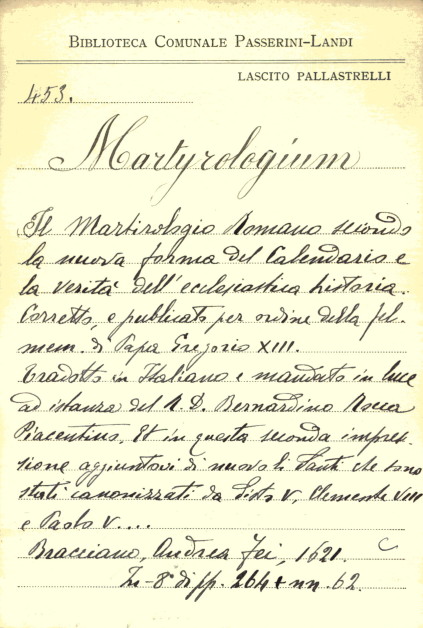 BIBLIOTECA COMUNALE PASSERINI-LANDI
LASCITO PALLASTRELLI
453.
Martyrologium
Il Martirologio Romano secondo
la nuova forma del Calendario e
la verità dell'ecclesiastica historia.
Corretto, e publicato per ordine della fel.
mem. di Papa Gregorio XIII.
Tradotto in Italiano e mandato in luce
ad istanza del R. D. Bernardino Rocca
Piacentino. Et in questa seconda impres-
sione aggiuntovi di nuovo li Santi che sono
stati canonizzati da Sisto V, Clemente VIII
e Paolo V....
Bracciano, Andrea Fei, 1621.
In-8° di pp. 264 + nn. 62.